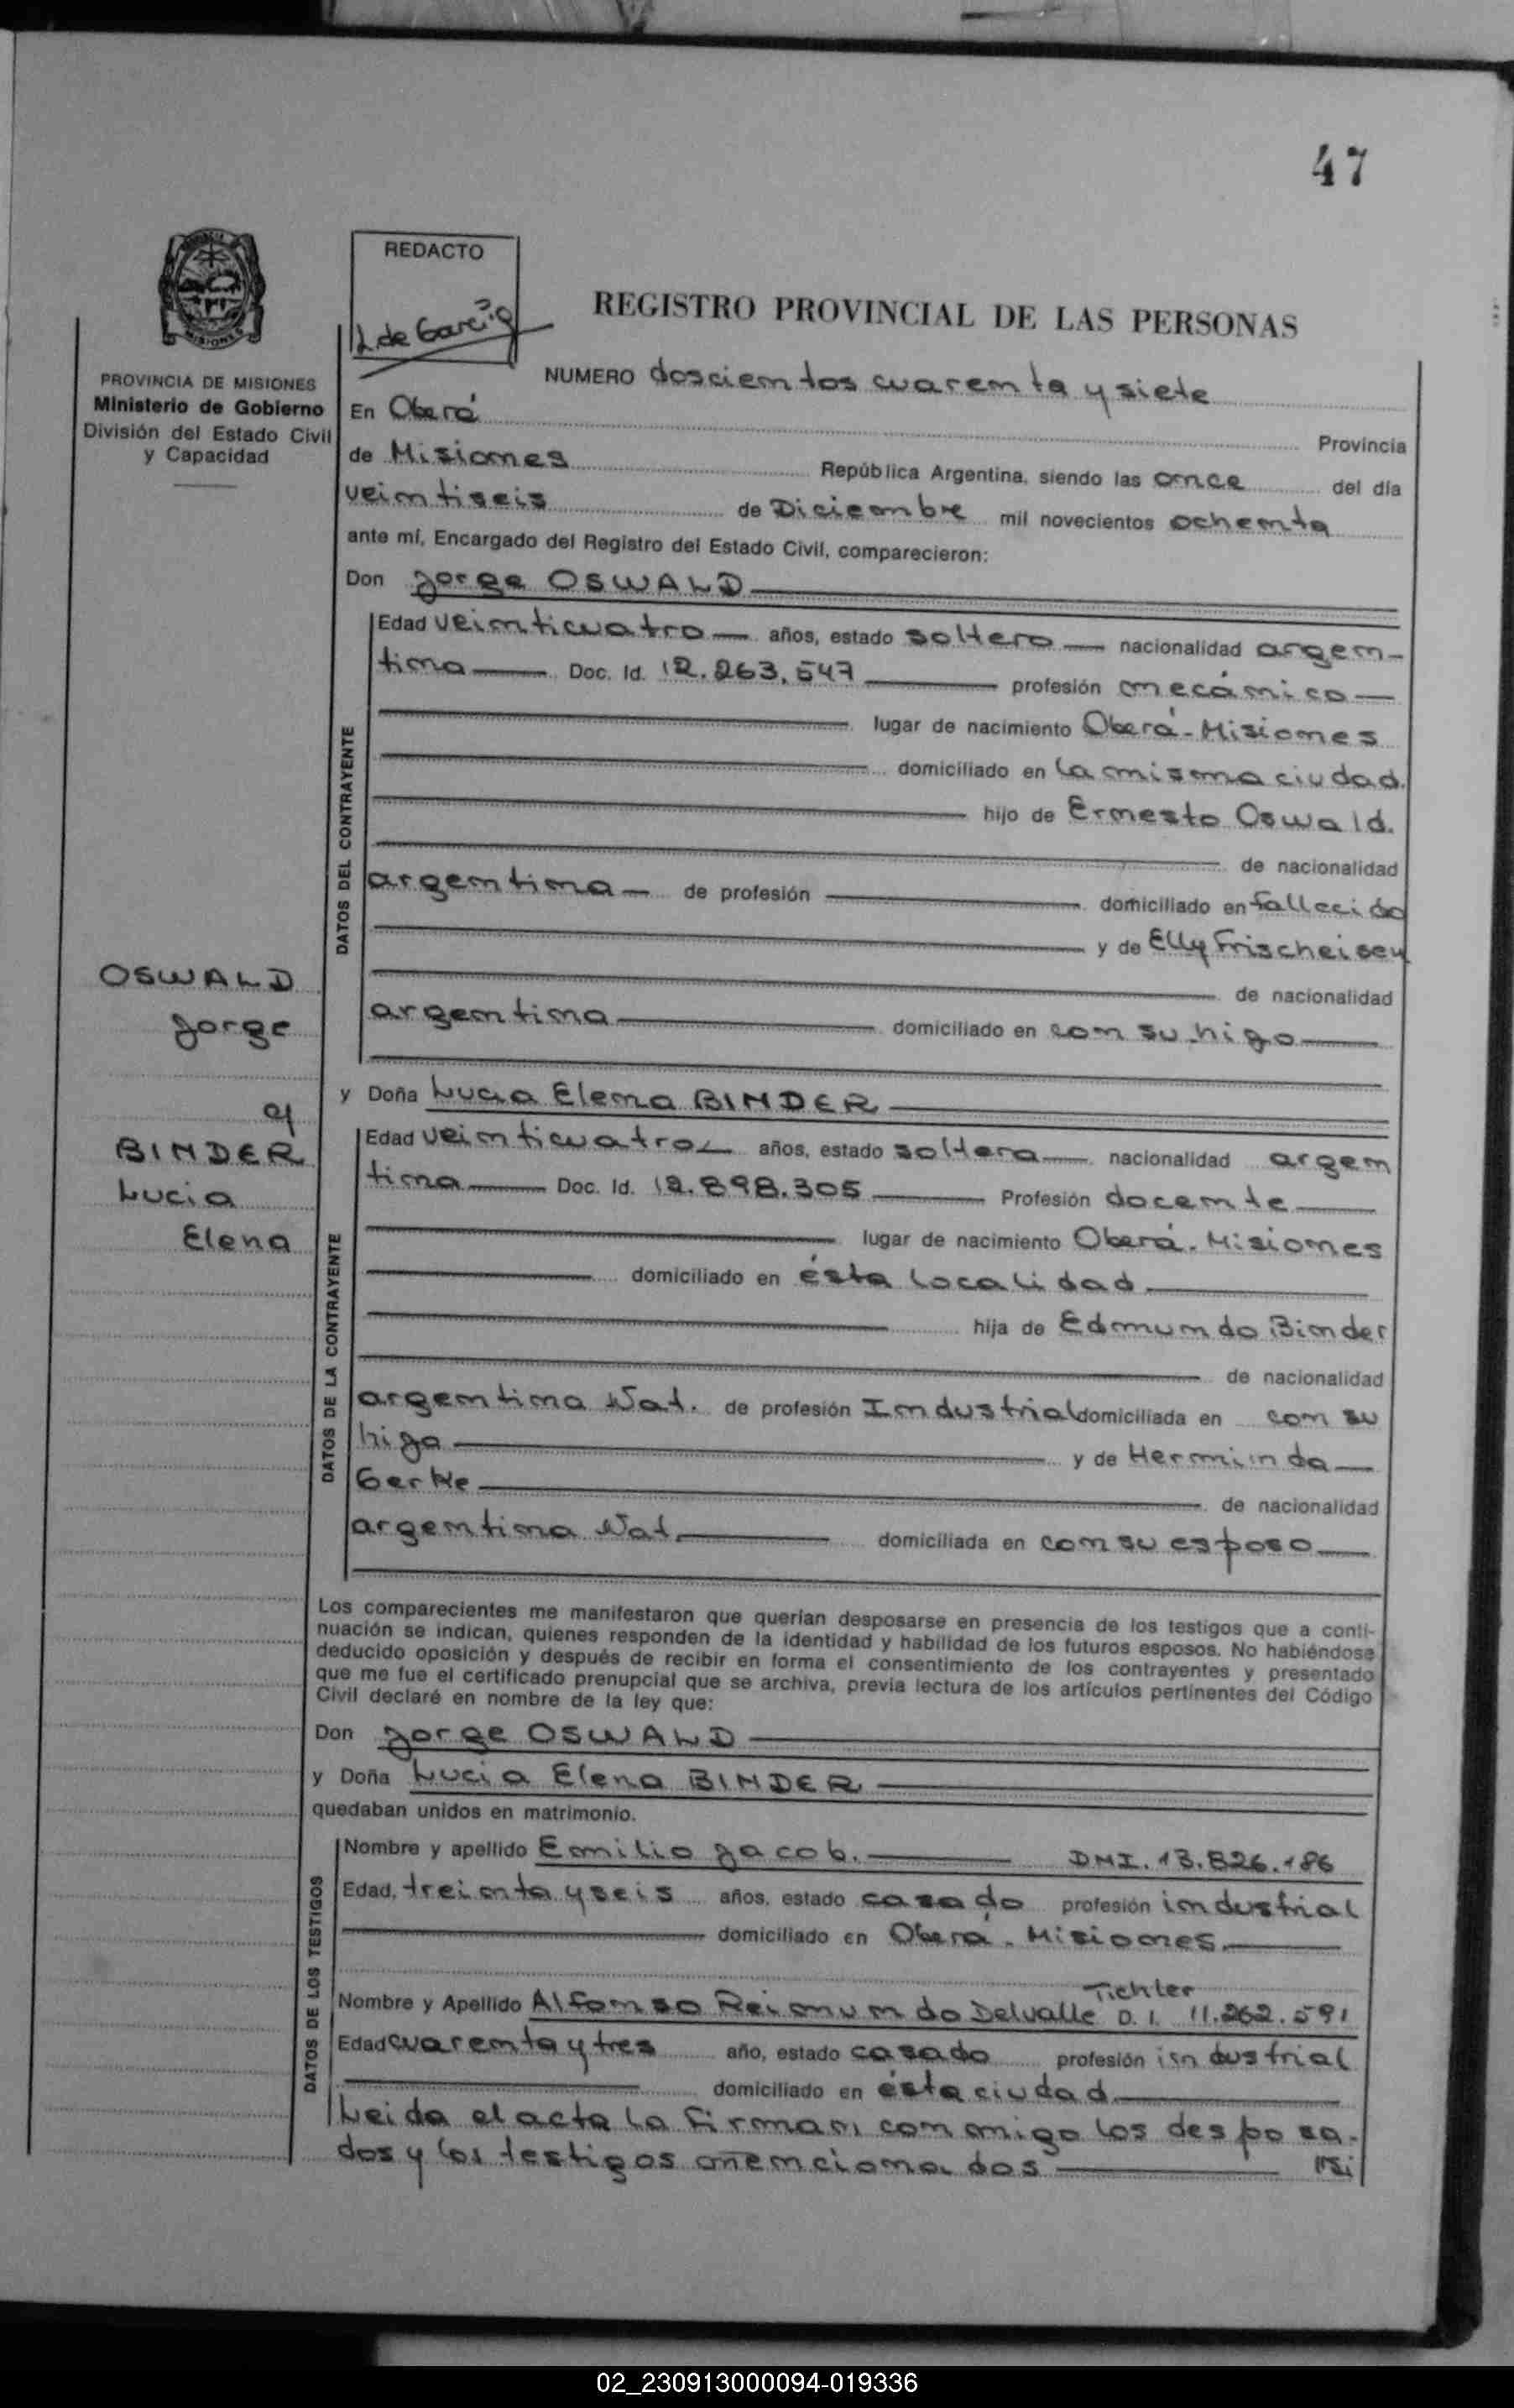 47
REDACTO
L de García
REGISTRO PROVINCIAL DE LAS PERSONAS
PROVINCIA DE MISIONES
Ministerio de Gobierno
División del Estado Civil
y Capacidad
NUMERO doscientos cuarenta y siete
En Oberá Provincia
de Misiones República Argentina, siendo las once del día
veintiseis de Diciembre mil novecientos ochenta
ante mí, Encargado del Registro del Estado Civil, comparecieron:
Don Jorge OSWALD
DATOS DEL CONTRAYENTE
Edad veinticuatro años, estado soltero nacionalidad argen-
tina Doc. Id. 12.263.547 profesión mecánico
lugar de nacimiento Oberá - Misiones
domiciliado en la misma ciudad.
hijo de Ernesto Oswald.
de nacionalidad
argentina de profesión domiciliado en fallecido
y de Elly Frischeisen
de nacionalidad
argentina domiciliado en con su higo
OSWALD
Jorge
y
BINDER
Lucia
Elena
y Doña Lucia Elena BINDER
DATOS DE LA CONTRAYENTE
Edad veinticuatro años, estado soltera nacionalidad argen
tina Doc. Id. 12.898.305 Profesión docente
lugar de nacimiento Oberá. Misiones
domiciliado en ésta localidad
hija de Edmundo Binder
de nacionalidad
argentina Nat. de profesión Industrial domiciliada en con su
higa y de Herminda
Gerke de nacionalidad
argentina Nat. domiciliada en con su esposo
Los comparecientes me manifestaron que querían desposarse en presencia de los testigos que a conti-
nuación se indican, quienes responden de la identidad y habilidad de los futuros esposos. No habiéndose
deducido oposición y después de recibir en forma el consentimiento de los contrayentes y presentado
que me fue el certificado prenupcial que se archiva, previa lectura de los artículos pertinentes del Código
Civil declaré en nombre de la ley que:
Don Jorge OSWALD
y Doña Lucia Elena BINDER
quedaban unidos en matrimonio.
DATOS DE LOS TESTIGOS
Nombre y apellido Emilio Jacob. DNI. 13.826.186
Edad, treinta y seis años, estado casado profesión industrial
domiciliado en Oberá. Misiones.
Tichler
Nombre y Apellido Alfonso Reimundo Delvalle D. I. 11.262.591
Edad cuarenta y tres año, estado casado profesión industrial
domiciliado en ésta ciudad
Leida el acta la firman conmigo los desposa-
dos y los testigos mencionados
02_230913000094-019336